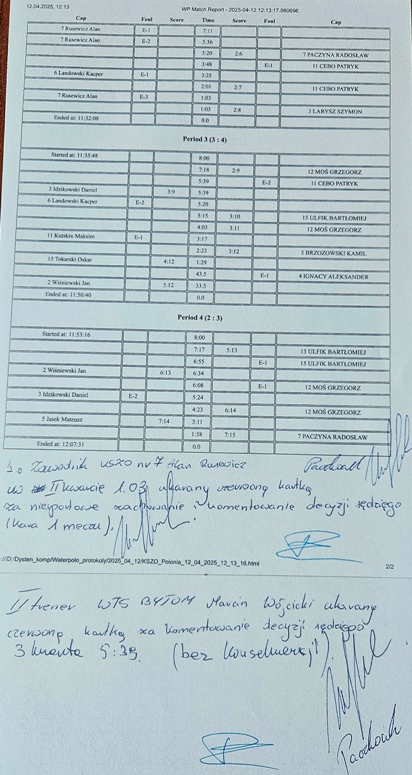 12.04.2025, 12:13 WP Match Report - 2025-04-12 12:13:17.980696
Cap Foul Score Time Score Foul Cap
7 Rusewicz Alan E-1 7:11
7 Rusewicz Alan E-2 5:36
5:20 2:6 7 PACZYNA RADOSŁAW
3:48 E-1 11 CEBO PATRYK
6 Landowski Kacper E-1 3:25
2:01 2:7 11 CEBO PATRYK
7 Rusewicz Alan E-3 1:03
1:03 2:8 3 LARYSZ SZYMON
Ended at: 11:32:08 0.0
Period 3 (3 : 4)
Started at: 11:35:48 8:00
7:18 2:9 12 MOŚ GRZEGORZ
5:39 E-2 11 CEBO PATRYK
3 Idzikowski Daniel 3:9 5:39
6 Landowski Kacper E-2 5:20
5:15 3:10 15 ULFIK BARTŁOMIEJ
4:03 3:11 12 MOŚ GRZEGORZ
11 Kutakin Maksim E-1 3:17
2:23 3:12 5 BRZOZOWSKI KAMIL
15 Tokarski Oskar 4:12 1:29
43.5 E-1 4 IGNACY ALEKSANDER
2 Wiśniewski Jan 5:12 33.5
Ended at: 11:50:40 0.0
Period 4 (2 : 3)
Started at: 11:53:16 8:00
7:17 5:13 15 ULFIK BARTŁOMIEJ
6:55 E-1 15 ULFIK BARTŁOMIEJ
2 Wiśniewski Jan 6:13 6:34
6:08 E-1 12 MOŚ GRZEGORZ
3 Idzikowski Daniel E-2 5:24
4:23 6:14 12 MOŚ GRZEGORZ
5 Jasek Mateusz 7:14 3:11
1:58 7:15 7 PACZYNA RADOSŁAW
Ended at: 12:07:31 0.0
1. Zawodnik KSZO nr 7 Alan Rusewicz
w II kwarcie 1.03 ukarany czerwoną kartką
za niesportowe zachowanie i komentowanie decyzji sędziego
(kara 1 meczu).
///D:/Dysten_komp/Waterpolo_protokoly/2025_04_12/KSZO_Polonia_12_04_2025_12_13_16.html 2/2
II trener WTS BYTOM Marcin Wójcicki ukarany
czerwoną kartką za komentowanie decyzji sędziego
3 kwarta 5:39. (bez konsekwencji)